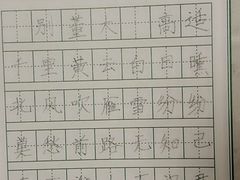 别董大 高适
千里黄云白日曛
北风吹雁雪纷纷
莫愁前路无知己